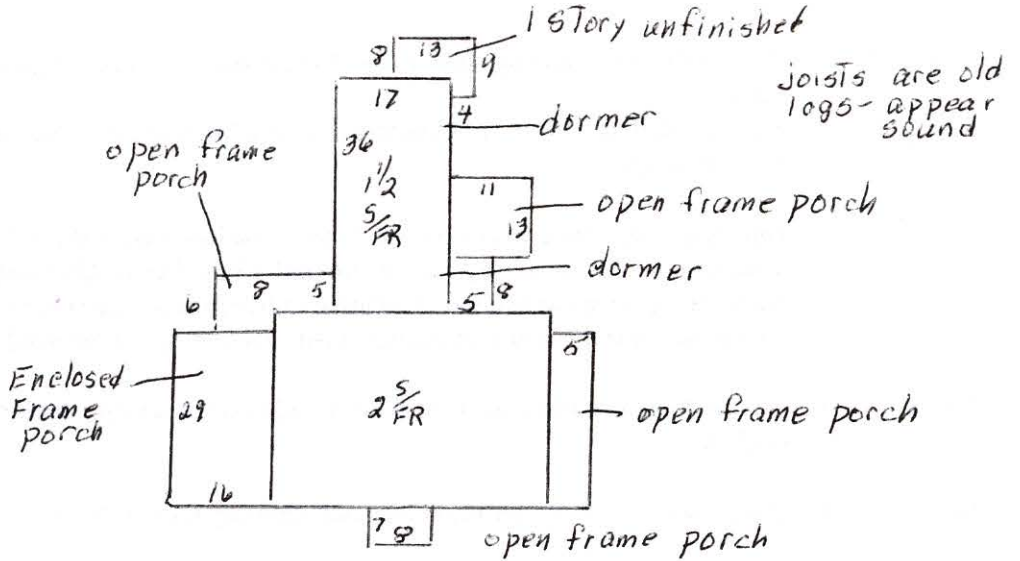 1 Story unfinished
8
13
9
joists are old
logs - appear
sound
17
4
dormer
open frame
porch
36
1 1/2
S/FR
11
open frame porch
13
dormer
6
8
5
5
8
5
Enclosed
Frame
porch
29
2 S/FR
open frame porch
16
7
8
open frame porch